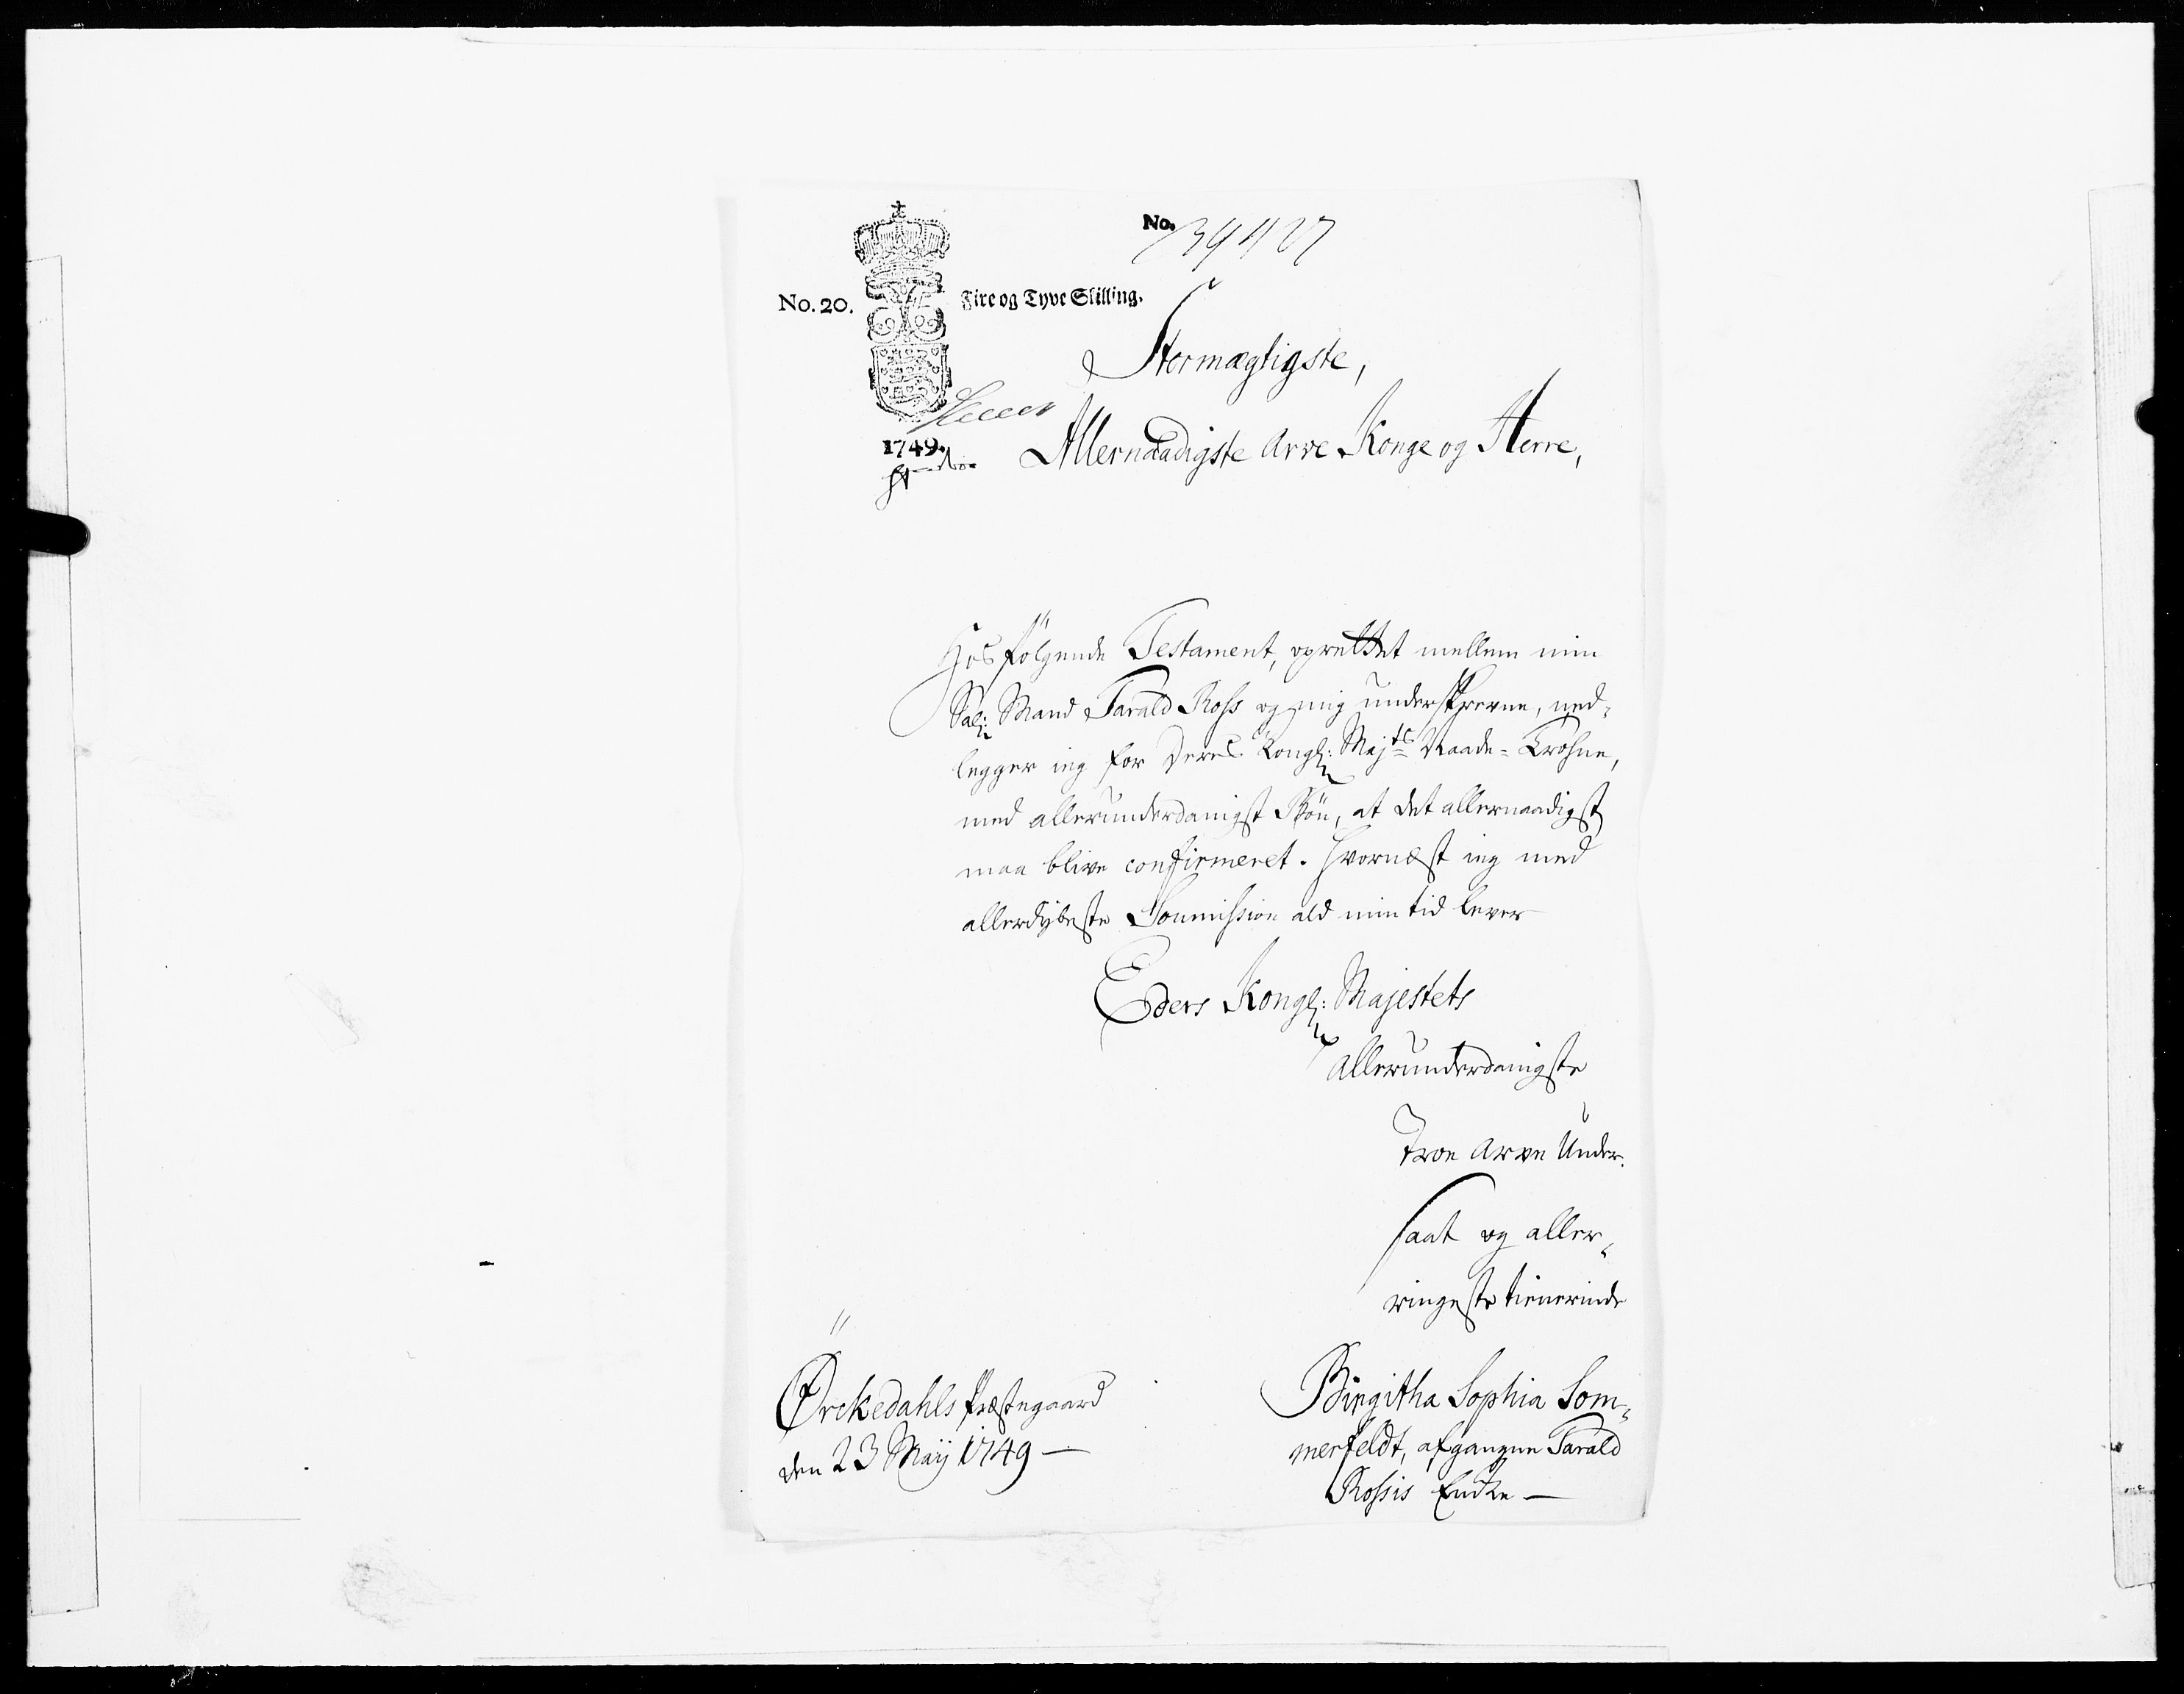 No. 39427
No. 20. Fire og Tyve Skilling.
Stormægtigste,
1749.
Allernaadigste Arve Konge og Herre,
Hosfølgende Testament, oprettet mellem min
Sal: Mand Tarald Ross og mig underskrevne, ned-
legger ieg for Deres Kongl: Majts Naade-Trohne,
med allerunderdanigst Bøn, at det allernaadigst
maa blive confirmeret. Hvornæst ieg med
allerdybeste Soumission ald min tid lever
Eders Kongl: Majestets
Allerunderdanigste
Troe Arve Under-
saat og aller-
ringeste tienerinde
Ørckedahls Præstegaard
den 23 Maij 1749 —
Birgitha Sophia Som-
merfeldt, afgangne Tarald
Rossis Encke —